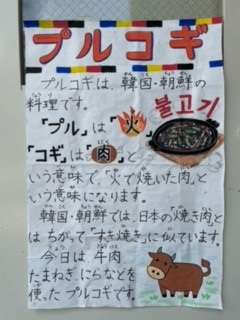 プルコギ
プルコギは、韓国・朝鮮の
料理です。
불고기
「プル」は「火」
「コギ」は「肉」と
いう意味で、「火で焼いた肉」と
いう意味になります。
韓国・朝鮮では、日本の焼き肉と
はちがって「すき焼き」に似ています。
今日は、牛肉
たまねぎ、にらなどを
使ったプルコギです。